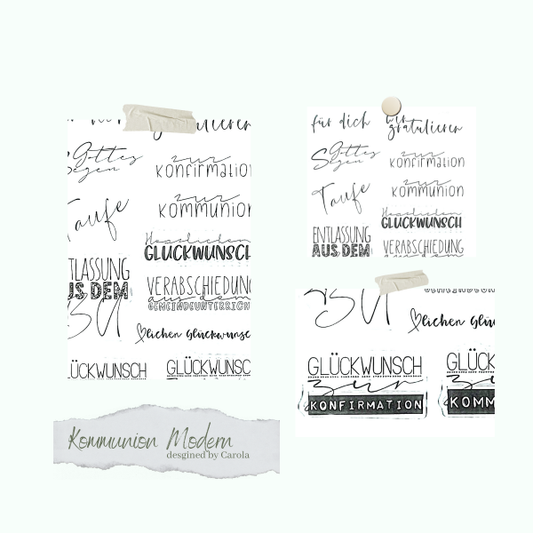 gratulieren
Gottes
Segen
zur
Konfirmation
Taufe
zur
Kommunion
Herzlichen
GLÜCKWUNSCH
ENTLASSUNG
AUS DEM
VERABSCHIEDUNG
aus dem
GEMEINDEUNTERRICHT
zu
lichen Glückwunsc
GLÜCKWUNSCH
GLÜCKWUNSC
für dich
wir
gratulieren
Gottes
Segen
zur
Konfirmation
Taufe
zur
Kommunion
Herzlichen
GLÜCKWUNSCH
ENTLASSUNG
AUS DEM
VERABSCHIEDUNG
zu
lichen Glü
GLÜCKWUNSCH
zur
KONFIRMATION
GLÜCK
KOMM
Kommunion Modern
desgined by Carola